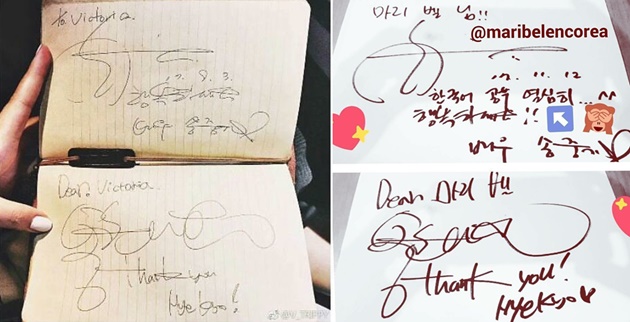 To. Victoria.
17. 8. 3.
Dear. Victoria.
Thank you
Hye kyo!
마리 벨 님!!
@maribelencorea
17. 11. 12
한국어 공부 열심히... ^^
행복하세요!!
배우 송중기
Dear 마리 벨!!
Thank you!
Hye Kyo